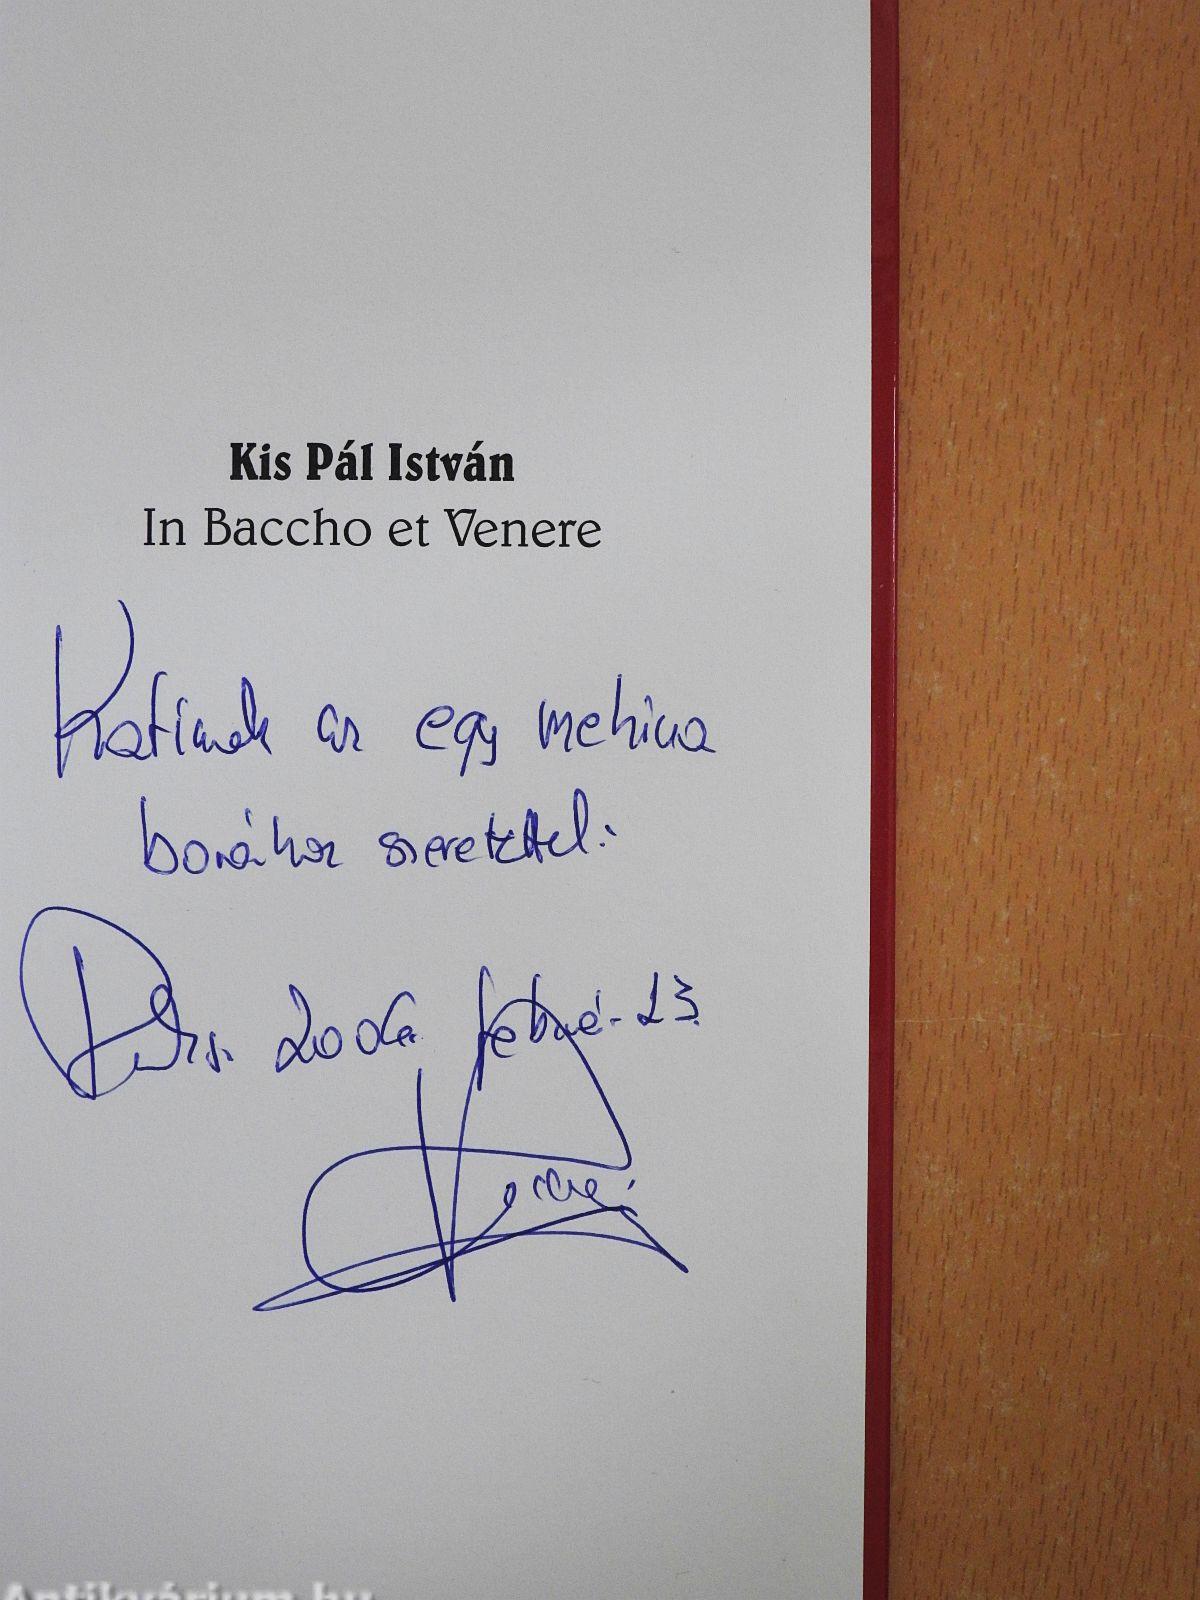 Kis Pál István
In Baccho et Venere
Katinak az egy
borához szeretettel:
2006 23.
Antikvárium.hu